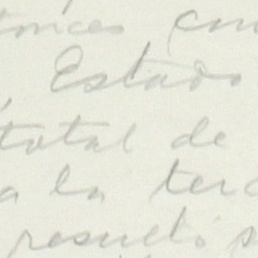 tonces con
Estado
total de
a la terc
resueltos